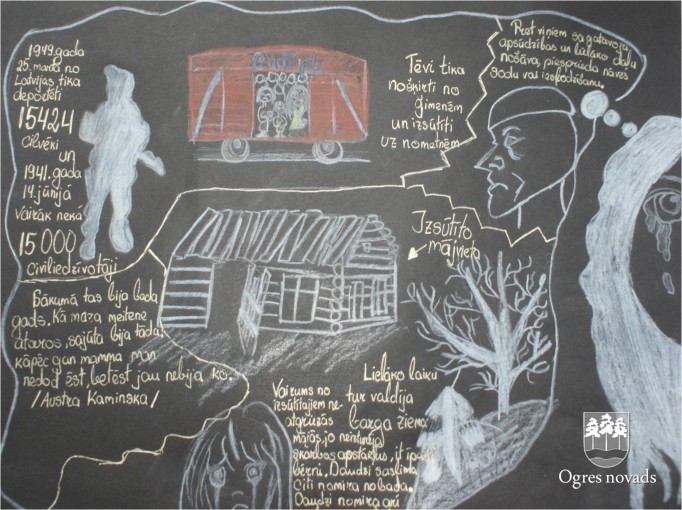 1949.gada
25. martā no
Latvijas tika
deportēti
15424
cilvēki
un
1941.gada
14.jūnijā
Vairāk nekā
15 000
Civiliedzīvotāji
Tēvi tika
nošķirti no
ģimenēm
un izsūtīti
uz nometnēm
Pret viņiem sagatavoja
apsūdzības un lielāko daļu
nošāva, piesprieda nāves
sodu vai
Izsūtīto
mājvieta
Sākumā tas bija bada
gads. Kā maza meitene
atceros, sajūta bija tāda
kāpēc gan mamma man
nedod ēst, bet ēst jau nebija ko.
/Austra Kaminska/
Vairums no
izsūtītajiem ne-
atgriezās
mājās, jo neizturēja
skarbos apstākļus, it īpaši
bērni. Daudzi saslima
Citi nomira no bada.
Daudzi nomira arī
Lielāko laiku
tur valdīja
barga ziema
Ogres novads